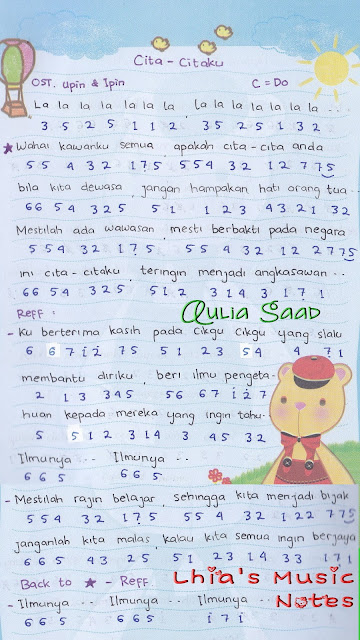 Cita - Citaku
OST. Upin & Ipin C = Do
La la la la la la la , la la la la la la la . . .
3 5 2 5 1 1 2 3 5 2 5 1 3 2
★ Wahai kawanku semua , apakah cita-cita anda
5 5 4 3 2 1 7 5 5 5 4 3 2 1 2 7 7 5
bila kita dewasa , jangan hampakan hati orang tua . .
6 6 5 4 3 2 5 5 1 1 2 3 4 3 2 1 3 2
Mestilah ada wawasan , mesti berbakti pada negara
5 5 4 3 2 1 7 5 5 5 4 3 2 1 2 2 7 7 5
ini cita-citaku , teringin menjadi angkasawan . .
6 6 5 4 3 2 5 5 1 2 3 1 4 3 1 7 1
Reff : Aulia Saad
- Ku berterima kasih pada cikgu cikgu yang slalu
6 6 7 i 2 7 5 5 1 2 3 5 4 4 7 1
membantu diriku , beri ilmu pengeta-
2 1 3 3 4 5 5 6 6 7 i 2 7
huan kepada mereka yang ingin tahu .
5 5 1 2 3 1 4 3 4 5 3 2
Ilmunya . . Ilmunya . .
6 6 5 6 6 5
- Mestilah rajin belajar , sehingga kita menjadi bijak
5 5 4 3 2 1 7 5 5 5 4 3 2 1 2 2 7 7 5
janganlah kita malas , kalau kita semua ingin berjaya
6 6 5 4 3 2 5 5 1 2 3 1 4 3 3 1 7 1
Back to ★ - Reff Lhia's Music
Notes
- Ilmunya . . Ilmunya . . Ilmunya . .
6 6 5 6 6 5 i 7 i